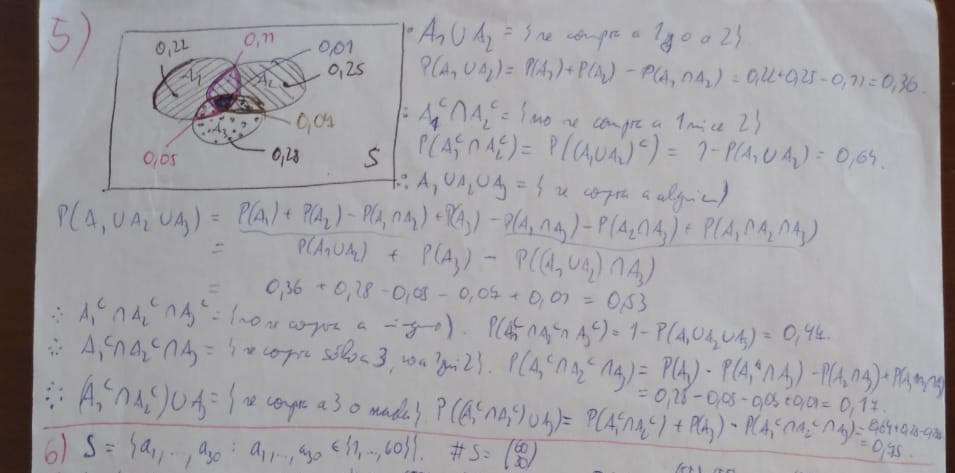 5)
0,22
0,11
0,01
0,25
A₁
A₂
A₃
0,07
0,05
0,28
S
A₁ ∪ A₂ = { se compra a 1 o a 2}
P(A₁ ∪ A₂) = P(A₁) + P(A₂) - P(A₁ ∩ A₂) = 0,22 + 0,25 - 0,11 = 0,36.
∴ A₁ᶜ ∩ A₂ᶜ = {no se compra a 1 ni a 2}
P(A₁ᶜ ∩ A₂ᶜ) = P((A₁∪A₂)ᶜ) = 1 - P(A₁ ∪ A₂) = 0,64.
∴ A₁ ∪ A₂ ∪ A₃ = { se compra a alguien}
P(A₁ ∪ A₂ ∪ A₃) = P(A₁) + P(A₂) - P(A₁ ∩ A₂) + P(A₃) - P(A₁ ∩ A₃) - P(A₂ ∩ A₃) + P(A₁ ∩ A₂ ∩ A₃)
= P(A₁ ∪ A₂) + P(A₃) - P((A₁ ∪ A₂) ∩ A₃)
= 0,36 + 0,28 - 0,0 - 0,07 + 0,01 = 0,53
∴ A₁ᶜ ∩ A₂ᶜ ∩ A₃ᶜ = {no se compra a ninguno}. P(A₁ᶜ ∩ A₂ᶜ ∩ A₃ᶜ) = 1 - P(A₁ ∪ A₂ ∪ A₃) = 0,47.
∴ A₁ᶜ ∩ A₂ᶜ ∩ A₃ = { se compra sólo a 3, no a 1 ni 2}. P(A₁ᶜ ∩ A₂ᶜ ∩ A₃) = P(A₃) - P(A₁ ∩ A₃) - P(A₂ ∩ A₃) + P(A₁ ∩ A₂ ∩ A₃)
= 0,28 - 0,05 - + 0,01 = 0,17.
∴ (A₁ᶜ ∩ A₂ᶜ) ∪ A₃ = { se compra a 3 o nada}. P((A₁ᶜ ∩ A₂ᶜ) ∪ A₃) = P(A₁ᶜ ∩ A₂ᶜ) + P(A₃) - P(A₁ᶜ ∩ A₂ᶜ ∩ A₃) =
= 0,75
6) S = {a₁, ..., a₃₀ : a₁, ..., a₃₀ ∈ {1, ..., 60}}. #S = (60 30)